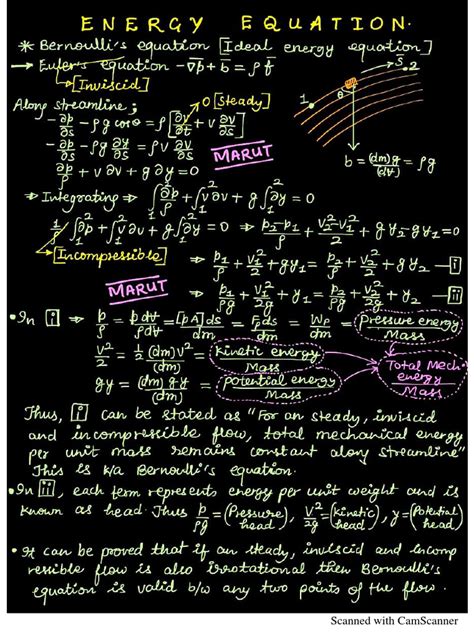 ENERGY EQUATION.
* Bernoulli's equation [Ideal energy equation]
→ Euler's equation -∇p + b̄ = ρf̄
[Inviscid]
Along streamline;
0 [Steady]
-∂p/∂s - ρg cosθ = ρ[∂v/∂t + v ∂v/∂s]
-∂p/∂s - ρg ∂y/∂s = ρv ∂v/∂s
MARUT
∂p/ρ + v∂v + g∂y = 0
1
2
s̄
θ
b = (dm)g/(dV) = ρg
⇒ Integrating ⇒ ∫₁²∂p/ρ + ∫₁²v∂v + g∫₁²∂y = 0
1/ρ ∫₁²∂p + ∫₁²v∂v + g∫₁²∂y = 0 ⇒ (p₂-p₁)/ρ + (v₂²-v₁²)/2 + gy₂-gy₁ = 0
[Incompressible]
⇒ p₁/ρ + v₁²/2 + gy₁ = p₂/ρ + v₂²/2 + gy₂ — [i]
MARUT
⇒ p₁/ρg + v₁²/2g + y₁ = p₂/ρg + v₂²/2g + y₂ — [ii]
• In [i] ⇒ p/ρ = p dV/ρdV = [pA]ds/dm = Fp ds/dm = Wp/m = Pressure energy/Mass
v²/2 = ½(dm)v²/(dm) = Kinetic energy/Mass
gy = (dm)gy/(dm) = Potential energy/Mass
Total Mech energy/Mass
Thus, [i] can be stated as "For an steady, inviscid
and incompressible flow, total mechanical energy
per unit mass remains constant along streamline"
This is k/a Bernoulli's equation.
• In [ii], each term represents energy per unit weight and is
known as head. Thus p/ρg = (Pressure head), v²/2g = (Kinetic head), y = (Potential head)
• It can be proved that if an steady, inviscid and incomp
ressible flow is also irrotational then Bernoulli's
equation is valid b/w any two points of the flow.
Scanned with CamScanner